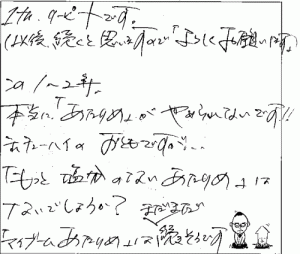 です。
(以後、続くと思いますので「よろしくお願いします」)
この1～2年、
本当に「あたりめ」が やめられないです!!
チューハイの おともですが…
「もっと 塩分 のない あたりめ」は
ないでしょうか? まだまだ
「マイブーム あたりめ」は続きそうです